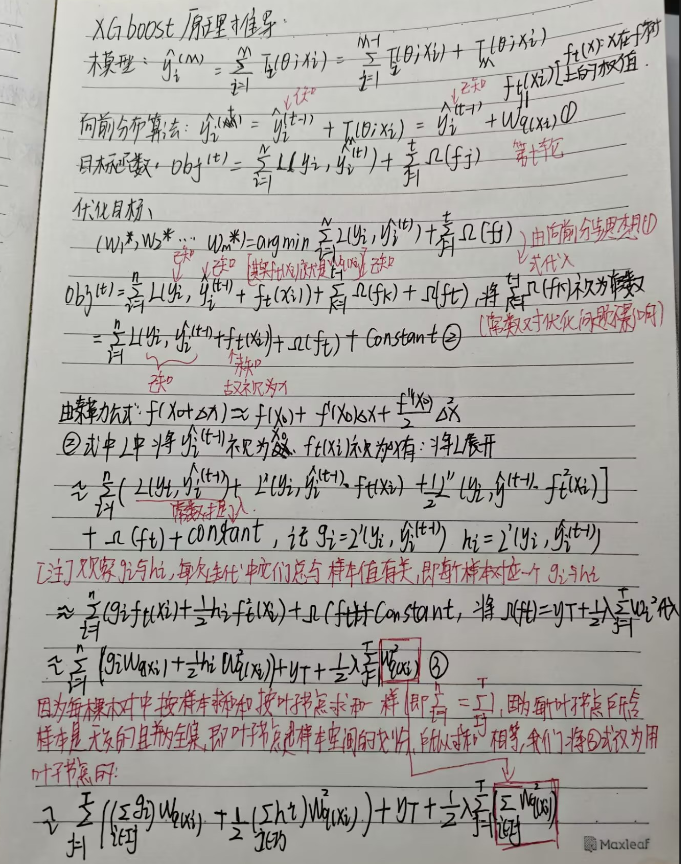 XGboost 原理推导:
模型: ŷᵢ⁽ᵐ⁾ = Σᵢ₌₁ᵐ Tᵢ(θ;xᵢ) = Σᵢ₌₁ᵐ⁻¹ Tᵢ(θ;xᵢ) + Tₘ(θ;xᵢ)
fₜ(xᵢ) [fₜ(x): x在f树上的权值.
已知 已知
向前分布算法: ŷᵢ⁽ᵗ⁾ = ŷᵢ⁽ᵗ⁻¹⁾ + Tₘ(θ;xᵢ) = ŷᵢ⁽ᵗ⁻¹⁾ + W_q(xᵢ) ①
目标函数: obj⁽ᵗ⁾ = Σᵢ₌₁ⁿ L(yᵢ, ŷᵢ⁽ᵗ⁾) + Σⱼ₌₁ᵗ Ω(fⱼ) 第t轮
优化目标:
(W₁*, W₂* ... Wₘ*) = argmin Σᵢ₌₁ⁿ L(yᵢ, ŷᵢ⁽ᵗ⁾) + Σⱼ₌₁ᵗ Ω(fⱼ)
由向前分步思想①式代入
已知 已知 已知
Obj⁽ᵗ⁾ = Σᵢ₌₁ⁿ L(yᵢ, ŷᵢ⁽ᵗ⁻¹⁾ + fₜ(xᵢ)) + Σₖ₌₁ᵗ⁻¹ Ω(fₖ) + Ω(fₜ), 将 Σₖ₌₁ᵗ⁻¹ Ω(fₖ)视为常数
= Σᵢ₌₁ⁿ L(yᵢ, ŷᵢ⁽ᵗ⁻¹⁾ + fₜ(xᵢ)) + Ω(fₜ) + Constant ② (常数对优化问题不影响)
已知 未知
故视为x
由泰勒公式: f(x₀+Δx) ≈ f(x₀) + f'(x₀)Δx + f''(x₀)/2 Δ²x
②式中L中将 ŷᵢ⁽ᵗ⁻¹⁾ 视为 x₀ fₜ(xᵢ)视为Δx有: 将L展开
≈ Σᵢ₌₁ⁿ ( L(yₜ, ŷᵢ⁽ᵗ⁻¹⁾) + L'(yᵢ, ŷᵢ⁽ᵗ⁻¹⁾· fₜ(xᵢ) + ½L''(yᵢ, ŷ⁽ᵗ⁻¹⁾· fₜ²(xᵢ)]
+ Ω(fₜ) + constant, 记 gᵢ=L'(yᵢ, ŷᵢ⁽ᵗ⁻¹⁾) hᵢ=L'(yᵢ, ŷᵢ⁽ᵗ⁻¹⁾)
[注]观察gᵢ与hᵢ, 每次迭代中它们总与样本值有关, 即每个样本对应一个gᵢ与hᵢ
≈ Σᵢ₌₁ⁿ (gᵢfₜ(xᵢ) + ½hᵢfₜ²(xᵢ) + Ω(fₜ) + Constant, 将 Ω(fₜ)=γT+½λΣⱼ₌₁ᵀWⱼ²代入
≈ Σᵢ₌₁ⁿ (gᵢW_q(xᵢ) + ½hᵢW²_q(xᵢ)) + γT + ½λΣⱼ₌₁ᵀ W²_q(xᵢ) ③
因为每棵树中按样本求和和按叶子节点求和一样 (即Σᵢ₌₁ⁿ = Σⱼ₌₁ᵀ), 因为每个叶子节点所含
样本是无交的且并为全集, 即叶子节点是样本空间的划分, 所以求和相等, 我们将③式改为用
叶子节点的:
≈ Σⱼ₌₁ᵀ ((Σᵢ∈Iⱼ gᵢ)W_q(xᵢ) + ½(Σᵢ∈Iⱼ hᵢ)W²_q(xᵢ)) + γT + ½λΣⱼ₌₁ᵀ Σᵢ∈Iⱼ W²_q(xᵢ)
Maxleaf